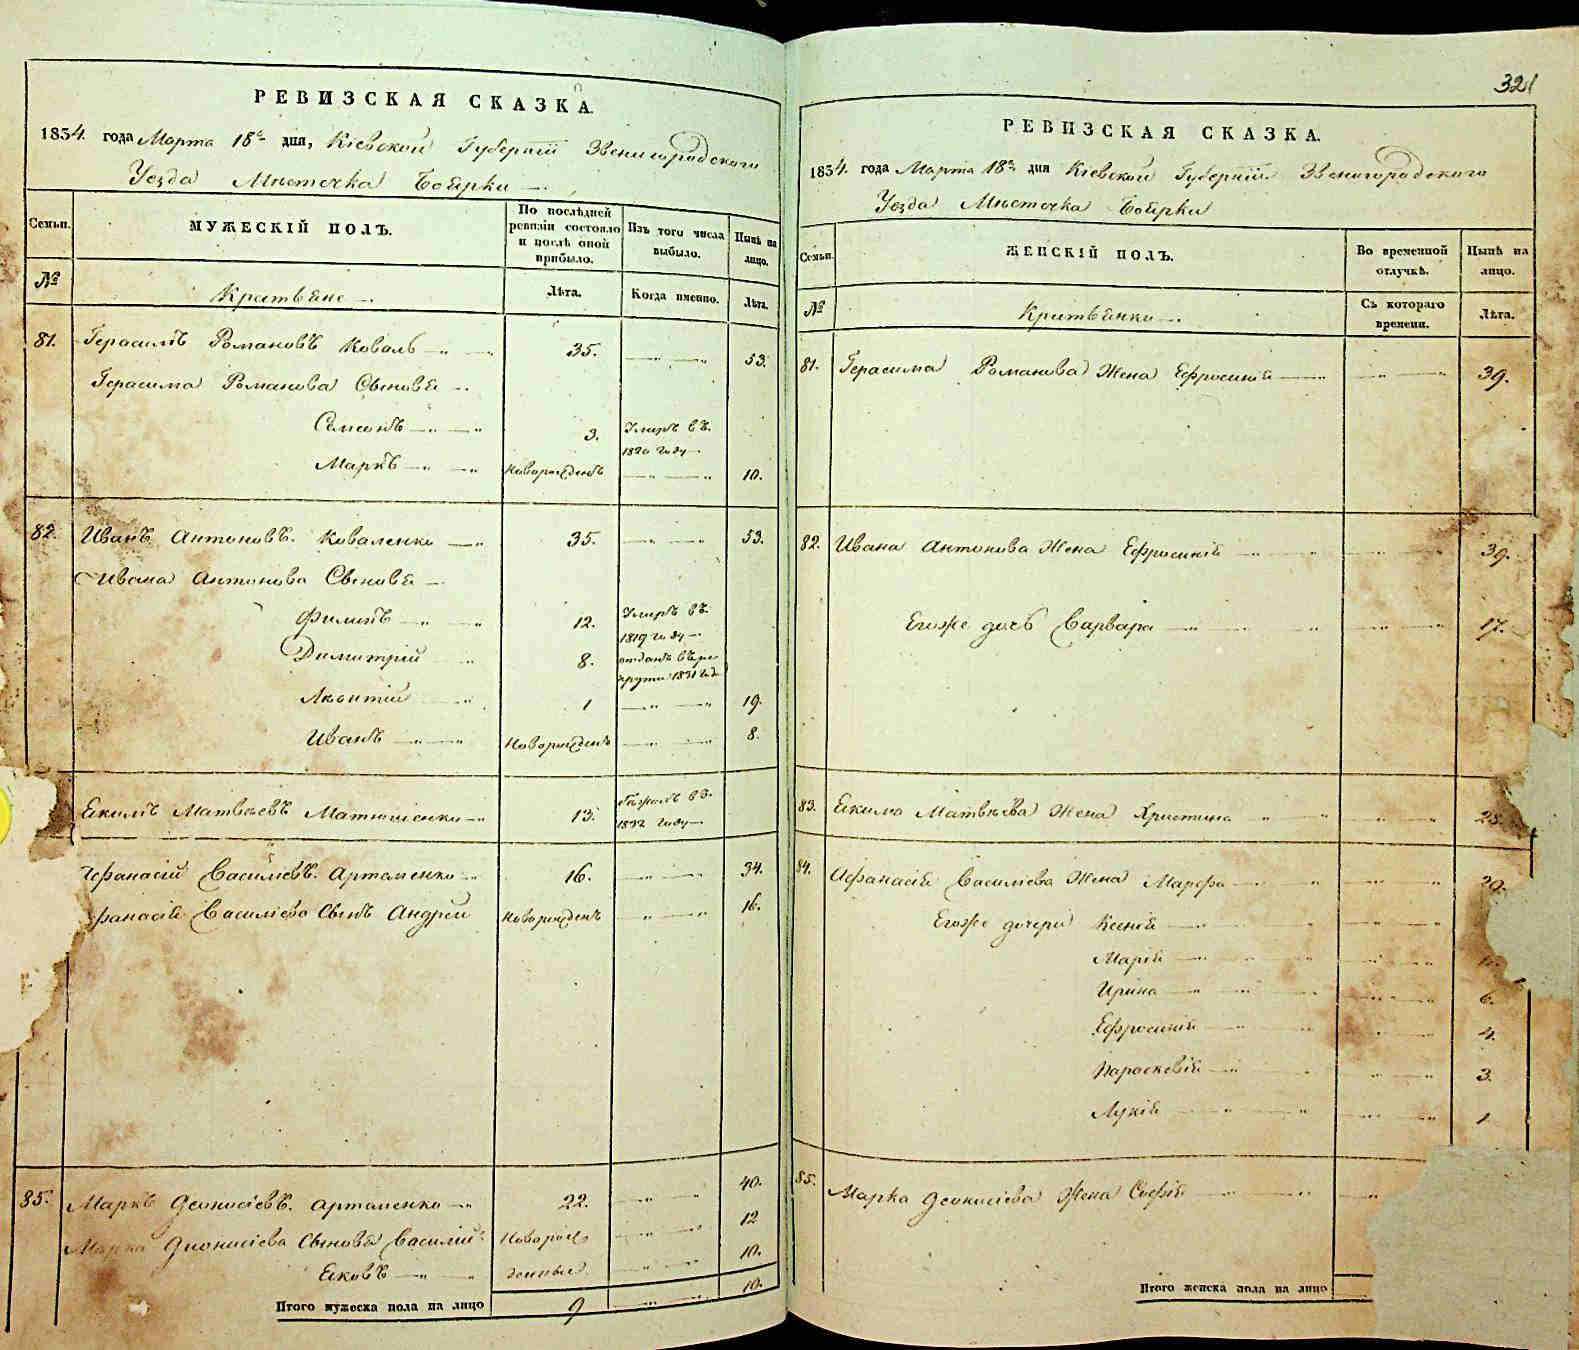 РЕВИЗСКАЯ СКАЗКА.
1834. года Марта 18го дня, Кіевской Губерніи Звенигородского
Уезда Мѣстечка Боярки
Семьи. МУЖЕСКІЙ ПОЛЪ. По послѣдней ревизіи состояло и послѣ оной прибыло. Изъ того числа выбыло. Нынѣ на лицо.
№ Лѣта. Когда именно. Лѣта.
81. Герасимъ Романовъ Коваль 35. 53.
Герасима Романова Сыновья
Самсонъ 3. Умеръ въ 1820 году
Марко новорожденъ 10.
82. Иванъ Антоновъ Коваленко 35. 53.
Ивана Антонова Сыновья
Филипъ 12. Умеръ въ 1819 году
Димитрій 8. отданъ въ рекруты 1831 год
Леонтій 1 19.
Иванъ Новорожденъ 8.
Екимъ Матвѣевъ Матюшенко 13. въ 1832 году
Афанасій Василіевъ Артаменко 16. 34.
фанасія Василіева Сынъ Андрей Новорожденъ 16.
85. Марко Деонисіевъ Артаменко 22. 40.
Марка Дионисіева Сыновья Василій Новорож 12
Яковъ денныя 10.
Итого мужеска пола на лицо 9 10.
321
РЕВИЗСКАЯ СКАЗКА.
1834. года Марта 18го дня Кіевской Губерніи Звенигородского
Уезда Мѣстечка Боярки
Семьи. ЖЕНСКІЙ ПОЛЪ. Во временной отлучкѣ. Нынѣ на лицо.
№ Съ котораго времени. Лѣта.
81. Герасима Романова Жена Ефросинія 39.
82. Ивана Антонова Жена Ефросинія 39.
Егоже дочь Варвара 17.
83. Екима Матвѣева Жена Христина 25.
84. Афанасія Василіева Жена Марфа
Егоже дочери Ксенія
Марія
Ирина 6.
Ефросинія 4.
Параскевія 3.
Лукія 1
85. Марка Деонисіева Жена Софія
Итого женска пола на лицо